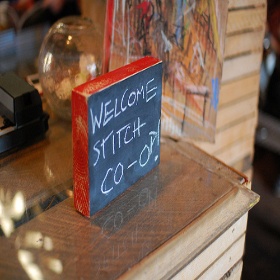 WELCOME
STITCH
CO-OP!